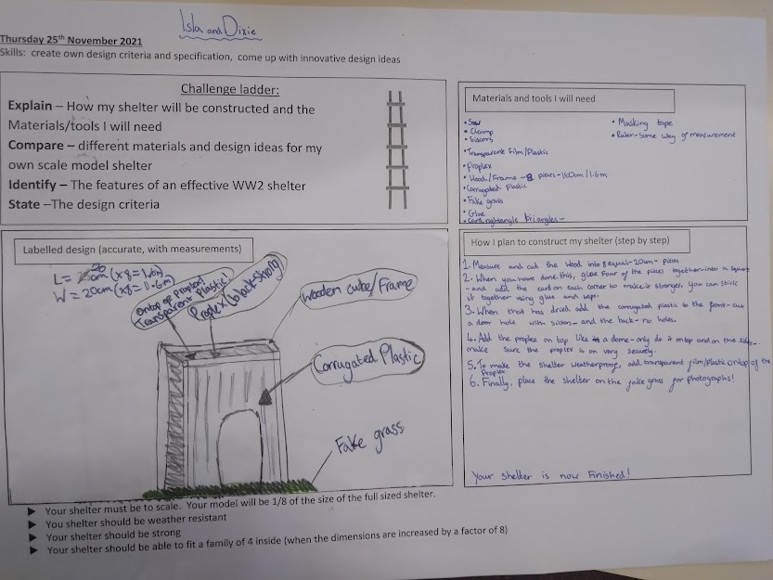 Isla and Dixie
Thursday 25th November 2021
Skills: create own design criteria and specification, come up with innovative design ideas
Challenge ladder:
Explain – How my shelter will be constructed and the
Materials/tools I will need
Compare – different materials and design ideas for my
own scale model shelter
Identify – The features of an effective WW2 shelter
State –The design criteria
Materials and tools I will need
• Saw
• Clamp
• Scissors
• Transparent Film/Plastic
• Proplex
• Wood/Frame - 8 pieces -
• Corrugated plastic
• Fake grass
• Glue
• Card rightangle triangles -
• Masking tape
• Ruler - Some way of measurement
Labelled design (accurate, with measurements)
L = 20cm (x8 = 1.6m)
W = 20cm (x8 = 1.6m)
Ontop of proplex!
Transparent Plastic!
Proplex (black-shiny)
Wooden cube/Frame
Corrugated Plastic
Fake grass
How I plan to construct my shelter (step by step)
1. Measure and cut the wood into 8 equal - 20cm - pieces
2. When you have done this, glue four of the pieces together into a square
- and add the card on each corner to make it stronger, you can stick
it together using glue and tape.
3. When that has dried add the corrugated plastic to the front - cut
a door hole with scissors - and the back - no holes.
4. Add the proplex on top like a dome - only do it on top and on the sides -
make sure the proplex is on very securely.
5. To make the shelter weatherproof, add transparent film/plastic ontop of the
Proplex
6. Finally, place the shelter on the fake grass for photographs!
Your shelter is now Finished!
➤ Your shelter must be to scale. Your model will be 1/8 of the size of the full sized shelter.
➤ You shelter should be weather resistant
➤ Your shelter should be strong
➤ Your shelter should be able to fit a family of 4 inside (when the dimensions are increased by a factor of 8)